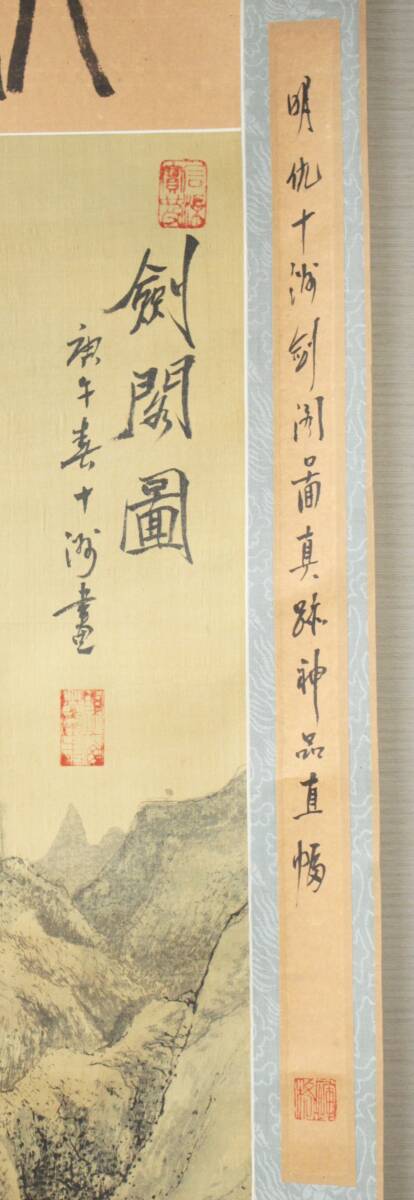 明仇十洲劍阁啚真跡神品直幅
劍閣圖
庚午春十洲畫